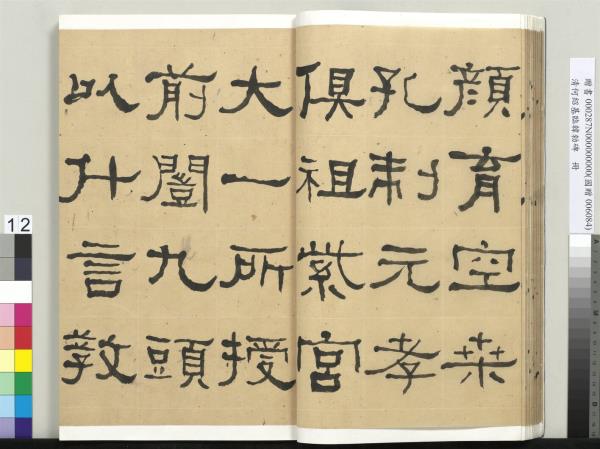 顏育空桒
孔制元孝
俱祖紫宮
大一所授
前闓九頭
以什言教
贈書 000287N000000000(國贈 006084)
清何紹基臨韓勑碑 冊
12